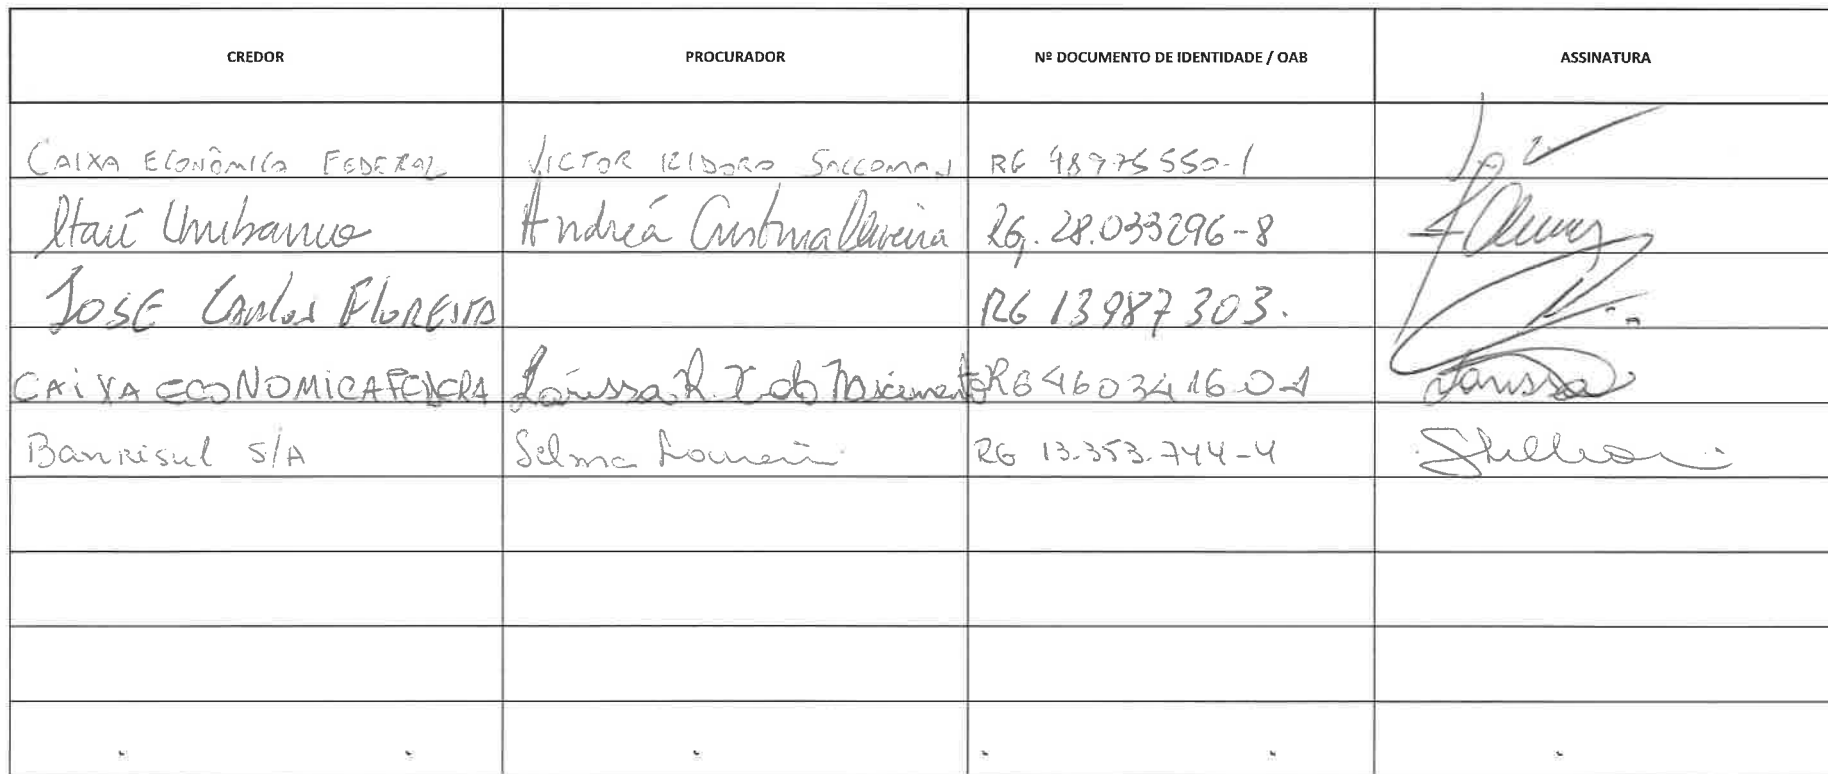 CREDOR PROCURADOR Nº DOCUMENTO DE IDENTIDADE / OAB ASSINATURA
CAIXA ECONÔMICA FEDERAL VICTOR IZIDORO SACCOMAN RG 48975550-1
Itaú Unibanco Andréa Cristina Oliveira RG. 28.033296-8
JOSE Carlos FLORESTA RG 13987303.
CAIXA ECONOMICA FEDERA Larissa R. X do Nascimento RG 46034160-1 Larissa
Banrisul S/A Selma RG 13.353.744-4